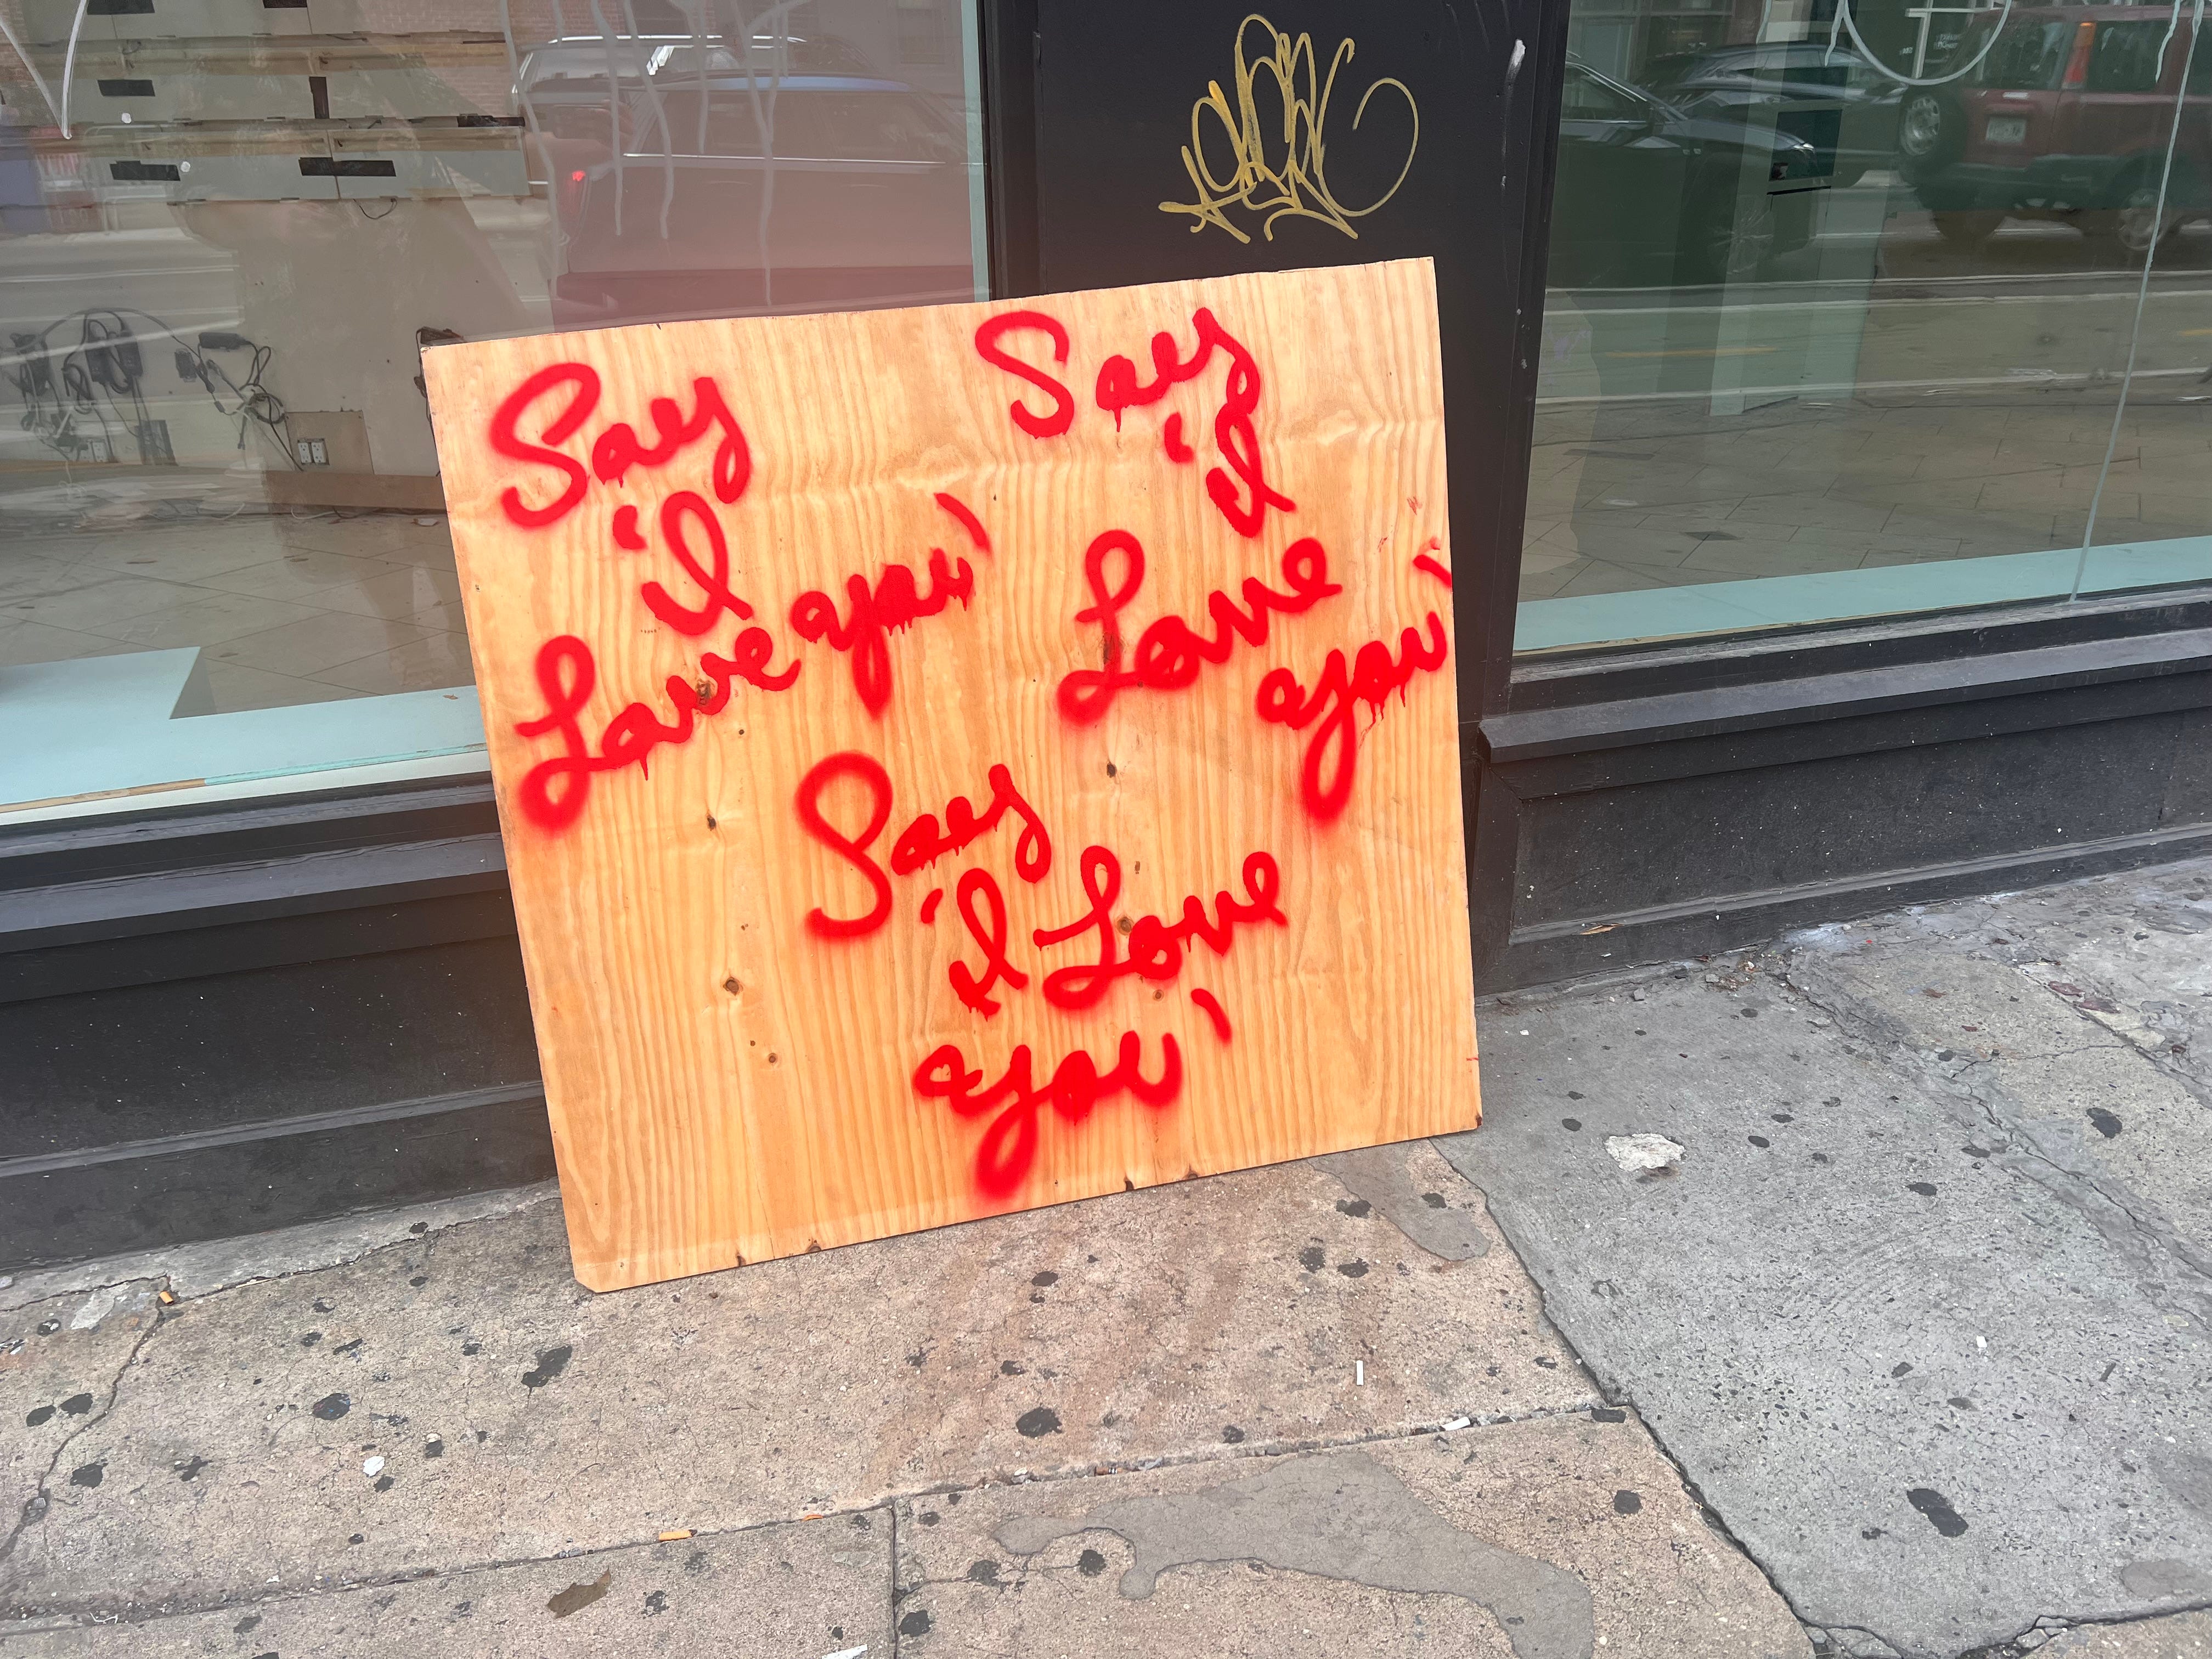 Say
'I
Love you'
Say
'I
Love
you'
Say
'I Love
you'